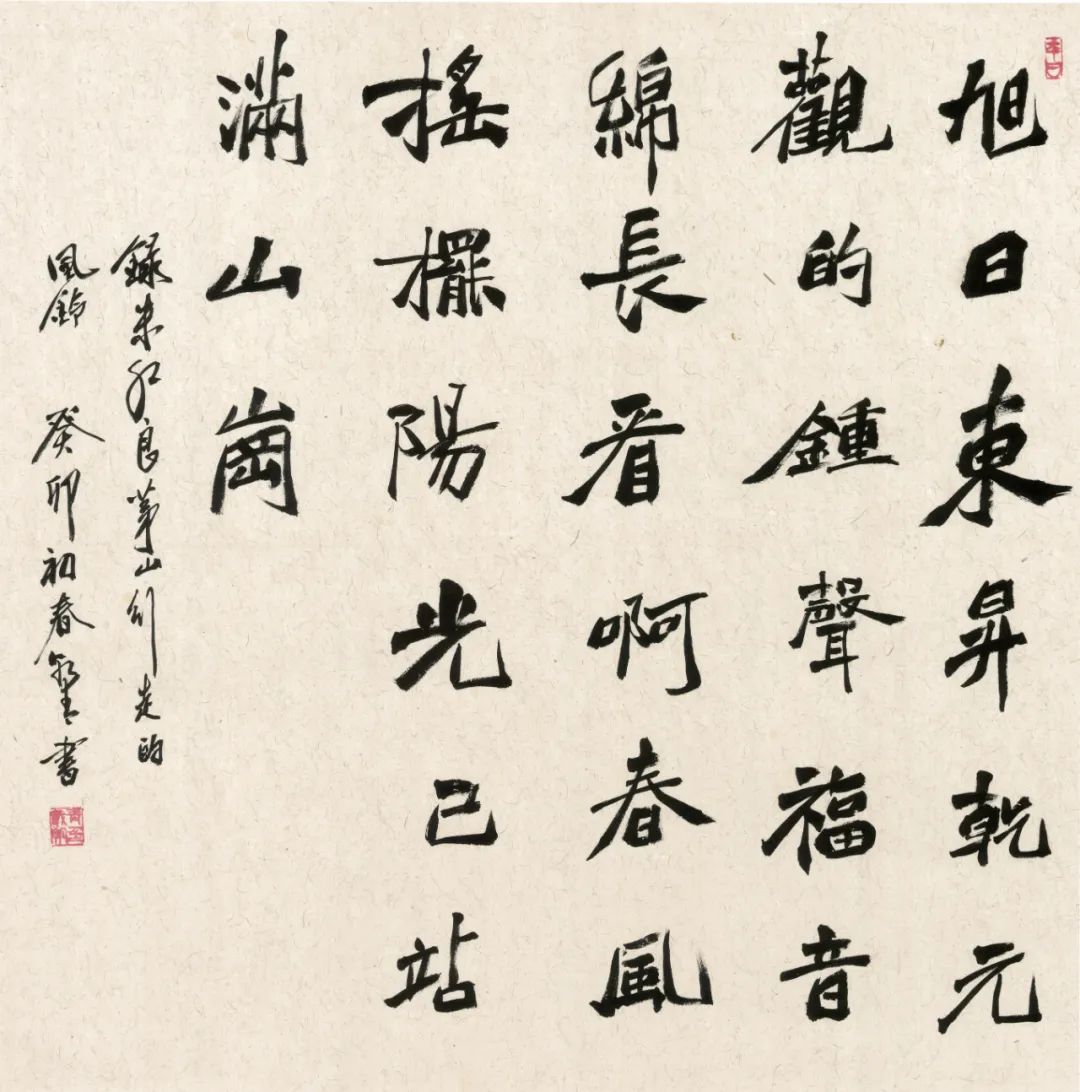 旭日東昇乾元
觀的鍾聲福音
綿長看啊春風
搖擺陽光已站
滿山崗
錄朱红良茅山行走的
風鈴 癸卯初春 書